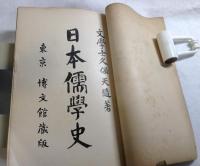 文學士久保天隨著
日本儒學史
東京 博文館藏版